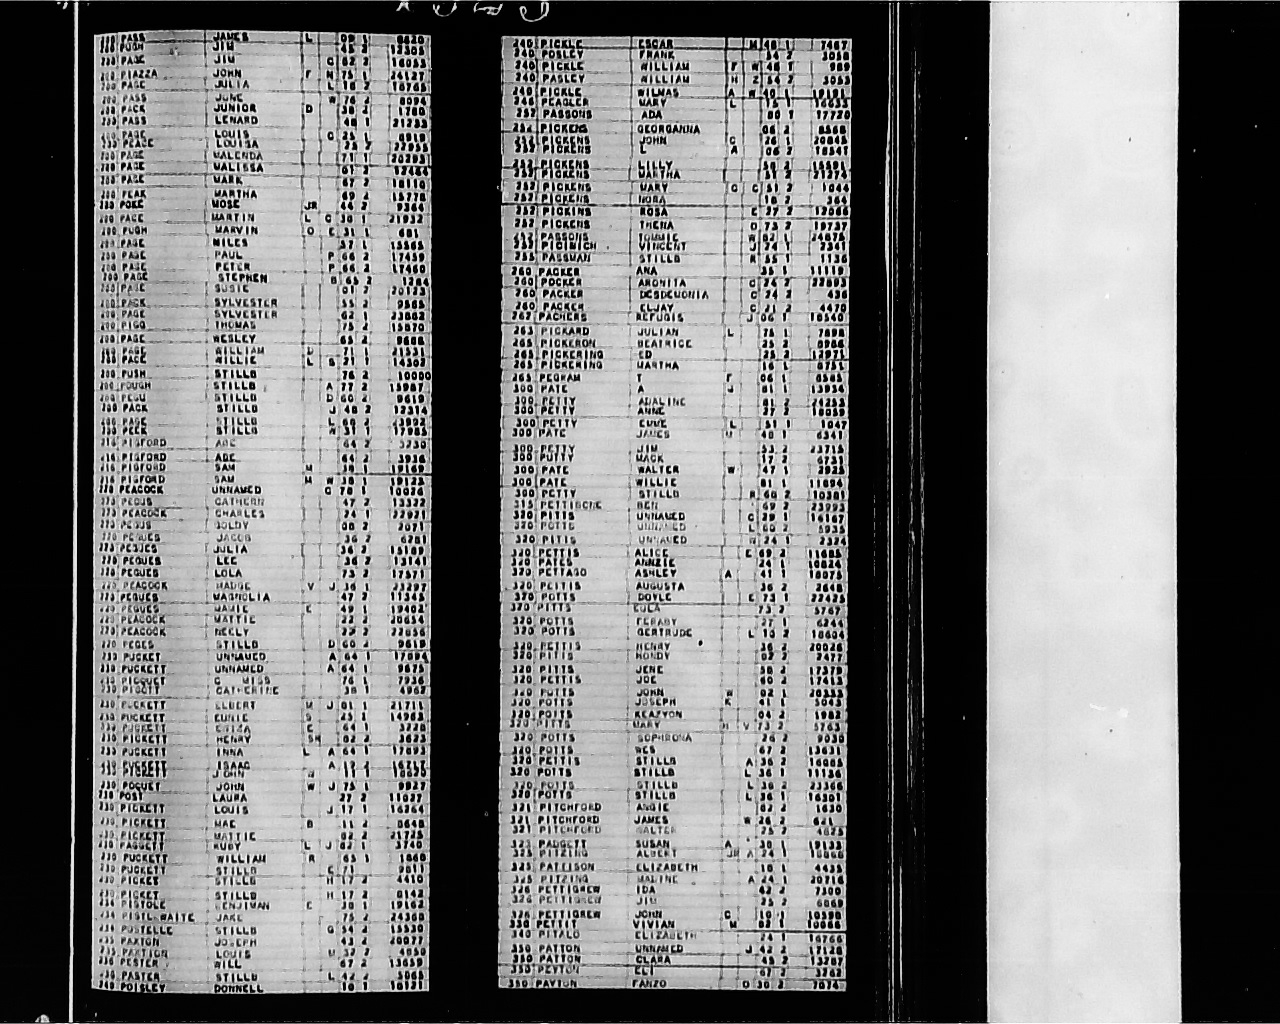 200 PASS JAMES L 09 1 8820
200 PUGH JIM 45 2 12305
200 PAGE JIM C 62 2 16053
200 PIAZZA JOHN F N 75 1 24127
200 PAGE JULIA L 16 2 16765
200 PASS JUNE W 76 2 8094
200 PACK JUNIOR D 38 2 1760
200 PASS LENARD 48 1 21233
200 PAGE LOUIS C 25 1
PEACE LOUISA 25 2 22955
200 PAGE MALENDA 71 1 20293
200 PAGE MALISSA 61 2 12464
200 PAGE MARK 67 2 18110
200 PEAK MARTHA 69 2 15778
200 POKE MOSE JR 44 2 9364
200 PACE MARTIN L C 30 1 21932
200 PUGH MARVIN O E 31 1 681
200 PAGE MILES 57 1 15565
200 PAGE PAUL P 66 2 17459
200 PAGE PETER P 66 2 17460
200 PAGE STEPHEN B 65 2 1264
200 PAGE SUSIE 01 2 20123
200 PACK SYLVESTER 55 2 9565
200 PAGE SYLVESTER 62 1 23863
200 PIGG THOMAS 75 2 15870
200 PAGE WESLEY 65 2 9686
200 PAGE WILLIAM D 71 1 21531
200 PACE WILLIE L S 21 1 14302
200 PUSH STILLB 76 2 10000
200 POUGH STILLB A 77 2 15987
200 PEGU STILLB D 60 2 9619
200 PACK STILLB J 48 2 12314
200 PAGE STILLB L 13992
200 PEEK STILLB W 31 1 9085
216 PIGFORD ABE 64 2 3230
216 PIGFORD ABE 64 2 3936
216 PIGFORD SAM M 38 1 19169
216 PIGFORD SAM M W 38 1 19123
220 PEACOCK UNNAMED C 78 1 10026
220 PEGUS CATHERN 47 2 13322
220 PEACOCK CHARLES 24 1 22921
220 PEGUS GOLDY 08 2 2071
220 PEGUES JACOB 36 2 6281
220 PEGUES JULIA 36 2 15189
220 PEGUES LEE 36 2 13141
220 PEGUES LOLA 73 2 17571
220 PEACOCK MADGE V J 36 1 23297
220 PEGUES MAGNOLIA 47 2 11345
220 PEGUES MAMIE E 49 1 19402
220 PEACOCK MATTIE 22 2 20654
220 PEACOCK NEELY 22 2 22856
220 PEGES STILLB D 60 2 9619
230 PUCKET UNNAMED A 64 1 17094
230 PUCKETT UNNAMED A 64 1 9675
230 PICQUET C MISS 76 1 7936
230 PIGOTT CATHERINE 38 1 4962
230 PUCKETT ELBERT M J 01 1 21711
230 PUCKETT EUNIE S 25 1 14962
230 PUCKETT E 64 1
230 PICKETT HENRY SR 02 2 3623
230 PUCKETT INNA L A 64 1 17093
230 PUCKETT ISAAC A 16717
230 PICKETT JOHN W 11 1 10620
230 POQUET JOHN W J 75 1 9927
230 POST LAURA 27 2 11037
230 PICKETT LOUIS J 17 1 16264
230 PICKETT MAE B 11 2 8648
230 PICKETT MATTIE 02 2 21725
230 PAGGETT RUBY L J 02 1 3740
230 PUCKETT WILLIAM R 65 1 1860
230 PUCKETT STILLB E 71 9811
230 PICKET STILLB H 17 2 4410
230 PICKET STILLB H 17 2 8142
234 PISTOLE BENJIMAN E 30 1 19162
234 PISTLEWAITE JAKE 75 2 24360
234 POSTELLE STILLB G 54 2 15530
235 PAXTON JOSEPH 43 2 20077
235 PAXTION LOUIS M 32 2 4850
236 PESTER WILL 67 2 13659
236 PASTER STILLB L 42 2 5065
240 POISLEY DONNELL 10 1 10121
240 PICKLE ESCAR M 48 1 7467
240 POSLEY FRANK 54 2 3058
240 PICKLE WILLIAM F W 48 1 989
240 PASLEY WILLIAM H Z 54 2 3053
240 PICKLE WILMAS A W 40 1 19191
246 PEAGLER MARY L 15 1 16633
252 PASSONS ADA 80 1 17720
252 PICKENS GEORGANNA 06 2 8568
252 PICKENS JOHN C 26 1 20845
252 PICKENS L A 06 2 18541
252 PICKENS LILLY 58 2 15591
252 PICKENS MARTHA 51 2 21274
252 PICKENS MARY C C 51 2 1044
252 PICKENS NORA 18 2 364
252 PICKINS ROSA E 27 2 12066
252 PICKENS THENA O 73 2 19737
252 PASSONS TOMMIE W 62 1 24675
253 VINCENT J 24 1 2361
255 PASSMAN STILLB R 55 1 1136
260 PACKER ANA 35 1 11119
260 POCKER ARONITA C 24 2 22893
260 PACKER DESDEMONIA C 24 2 436
260 PACKER ELJAY C 21 2 4470
262 PACHERS REFUGIS J 06 1 18540
263 PICKARD JULIAN L 75 1 7898
265 PICKERON BEATRICE 25 2 8966
265 PICKERING ED 25 2 12971
265 PICKERING MARTHA 16 1 8751
265 PEGRAM T F 06 1 8565
300 PATE A J 81 1 13954
300 PETTY ADALINE 81 2 24253
300 PETTY ANNE 27 2 18059
300 PETTY EMME L 51 1 1047
300 PATE JAMES M 40 1 6341
300 PETTY JIM 53 2 23715
300 PUTTY MACK 17 2 6731
300 PATE WALTER W 47 1 2925
300 PATE WILLIE 81 1 11894
300 PETTY STILLB R 60 2 10381
315 PETTIBONE BEN 69 2 23993
320 PITTS UNNAMED C 29 1 16187
320 POTTS UNNAMED L 60 2 5935
320 PITTS UNNAMED N 24 1 2324
320 PETTIS ALICE E 69 2 11685
320 PATES ANNZIE 24 1 10824
320 PETTAGO ASHLEY A 41 1 18075
320 PETTIS AUGUSTA 36 2 2648
320 POTTS DOYLE E 73 1 22425
320 PITTS EULA 73 2 5767
320 POTTS FERABY 27 1 6244
320 POTTS GERTRUDE L 10 2 18604
320 PETTIS HENRY 36 2 20026
320 PITTS HONDY 02 2 2477
320 PITTS JENE 58 2 17379
320 PETTIS JOE 60 2 17413
320 POTTS JOHN W 02 1 20333
320 POTTS JOSEPH K 41 1 5043
320 POTTS KEAZYON 04 2 1982
320 PITTS MARY H V 73 2 5763
320 POTTS SOPHRONA 26 2 9030
320 POTTS WES 67 2 13631
320 PETTIS STILLB A 36 2 16085
320 POTTS STILLB L 36 1 11136
320 POTTS STILLB L 36 2 23366
320 POTTS STILLB L 36 1 16301
321 PITCHFORD ANGIE 02 2 1630
321 PITCHFORD JAMES W 26 2 621
321 PITCHFORD WALTER 25 2 4825
323 PADGETT SUSAN A 30 1 19133
325 PITZING ALBERT JR A 24 1 10866
325 PATTISON ELIZABETH 10 1 4435
325 PITZING MALINE A 24 1 20716
326 PETTIGREW IDA 42 2 7300
326 PETTIGREW JIM 25 2 6069
326 PETTIGREW JOHN C 10 1 10598
330 PETTIT VIVIAN M 02 1 10086
340 PITALO ELIZABETH 24 1 16766
350 PATTON UNNAMED J 42 2 17128
350 PATTON CLARA 45 2 13287
350 PEYTON ELI 67 2 3262
350 PAYTON FANZO D 30 2 7074